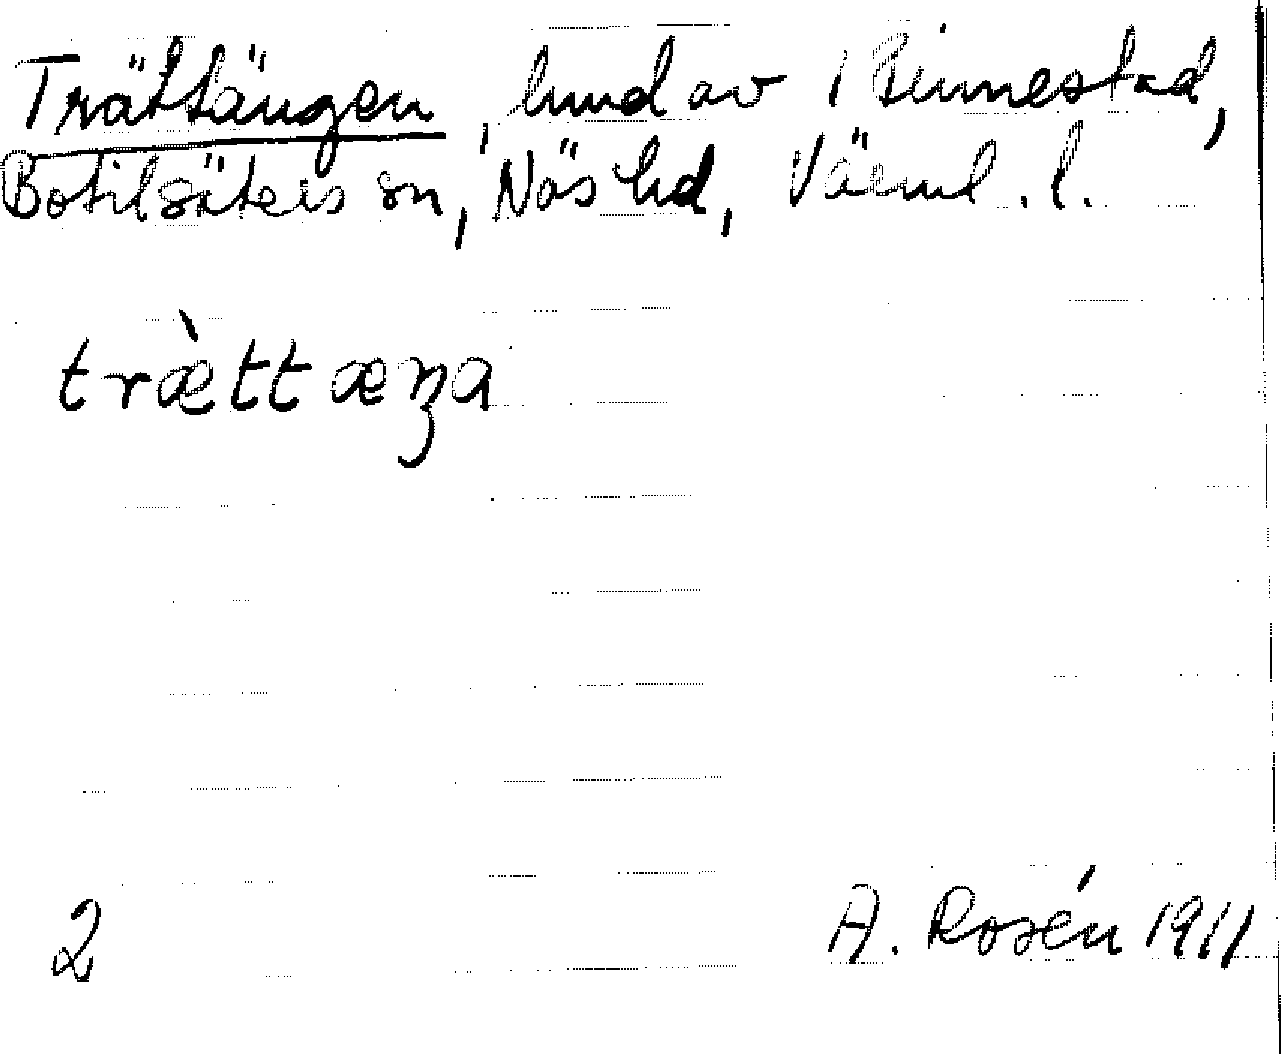 Trättängen, hmd av 1 Binnestad,
Botilsäters sn, Näs hd, Värml. l.
træ̀ttæŋa
2
A. Rosén 1911